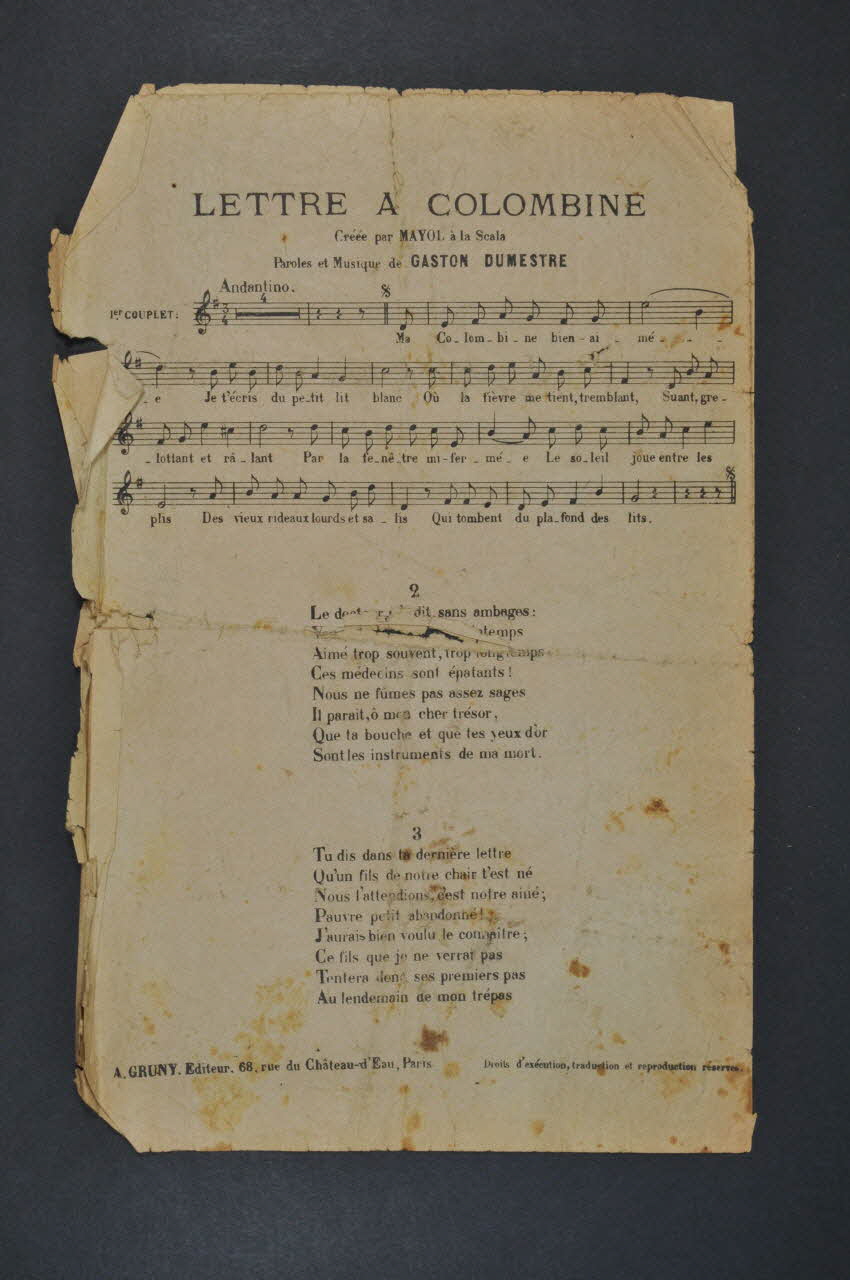 LETTRE A COLOMBINE
Créée par MAYOL à la Scala
Paroles et Musique de GASTON DUMESTRE
Andantino.
4
1er COUPLET:
3/4
Ma Co_lom_bi_ne bien-ai_mé_
_e Je t'écris du pe_tit lit blanc Où la fièvre me tient, tremblant, Suant, gre_
_lottant et râ_lant Par la fe_nê_tre mi-fer_mé_e Le so_leil joue entre les
plis Des vieux rideaux lourds et sa_lis Qui tombent du pla_fond des lits.
2
Le dit sans ambages:
Aimé trop souvent, trop longtemps
Ces médecins sont épatants!
Nous ne fûmes pas assez sages
Il parait, ô mon cher trésor,
Que ta bouche et que tes yeux d'or
Sont les instruments de ma mort.
3
Tu dis dans ta dernière lettre
Qu'un fils de notre chair t'est né
Nous l'attendions, c'est notre ainé;
Pauvre petit abandonné!
J'aurais bien voulu le connaitre;
Ce fils que je ne verrai pas
Tentera donc ses premiers pas
Au lendemain de mon trépas
A. GRUNY. Editeur. 68, rue du Château-d'Eau, Paris
Droits d'exécution, traduction et reproduction réservés.